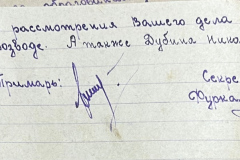 рассмотрения Вашего дела
озводе. А также Дубина Нико
Примарь: Секре
Фуркал